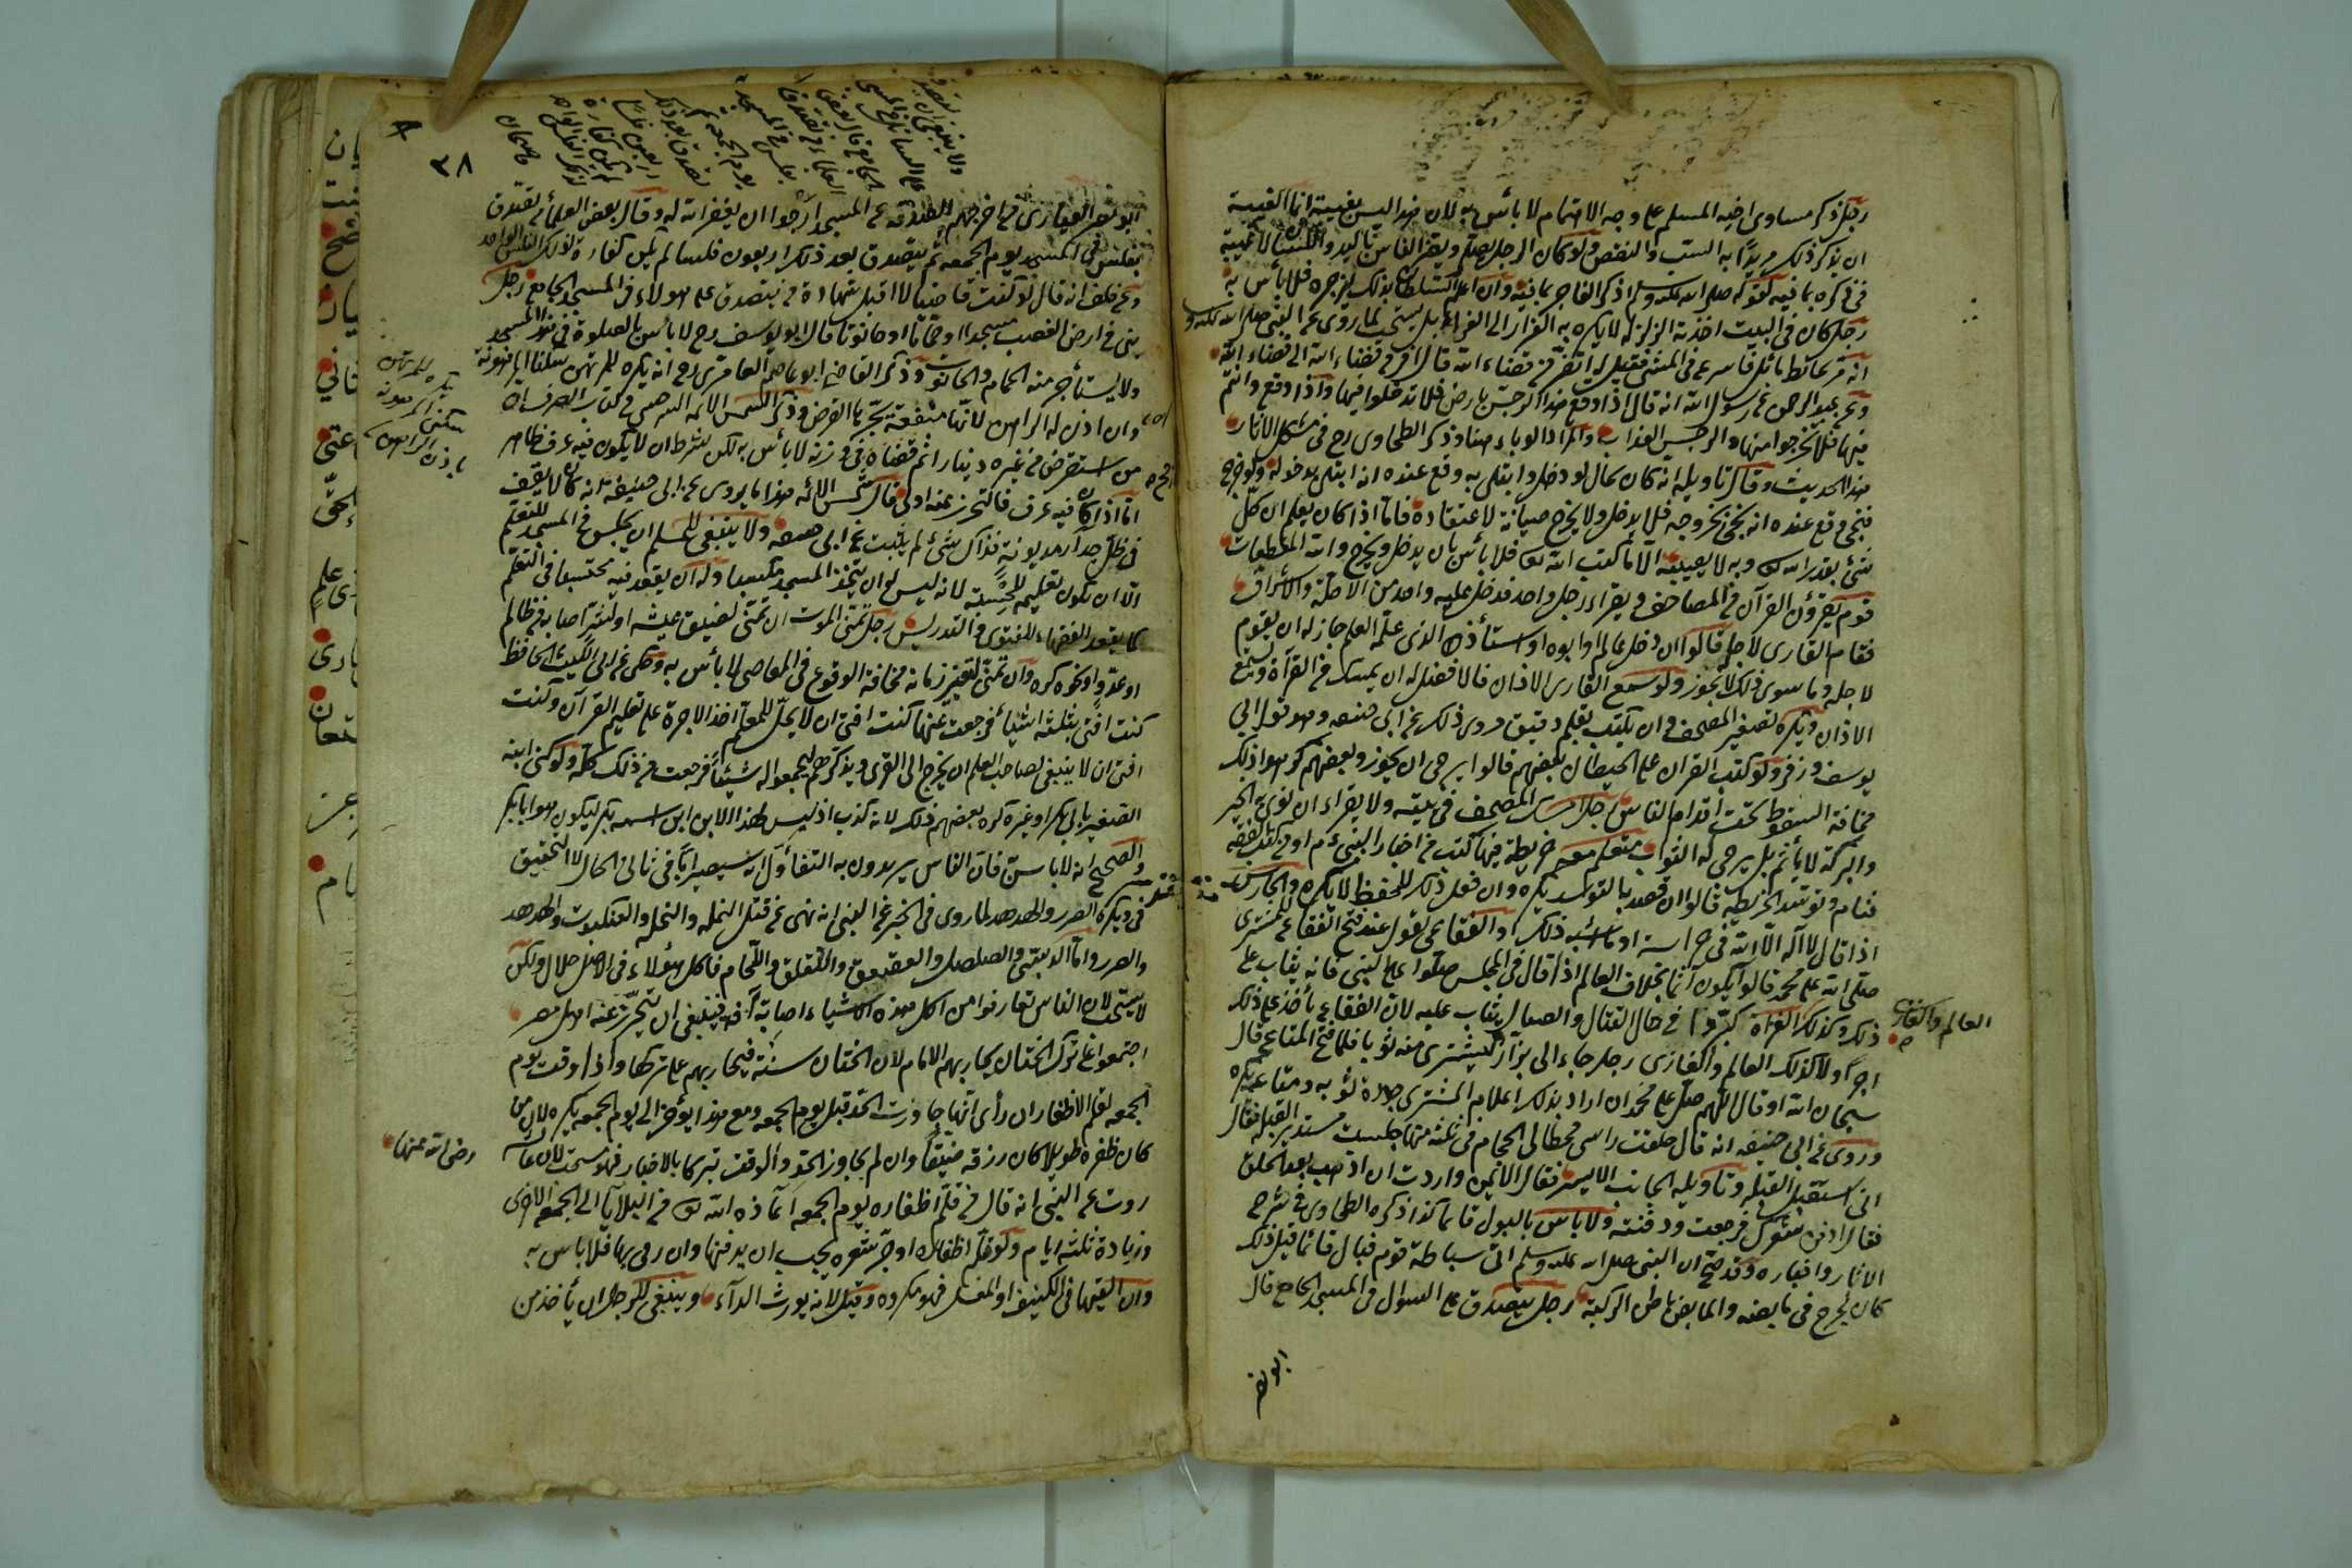 رجل ذكر مساوى اخيه المسلم على وجه الاهتمام لا بأس به لان هذا ليس بغيبة انما الغيبة
ان يذكر ذلك مريدًا به السب والنقص ولو كان الرجل يصلى ويضر الناس باليد واللسان لا غيبة
فى ذكره بما فيه لقوله صلى الله عليه وسلم اذكر الفاجر بما فيه وان اعلم السلطان بذلك ليزجره فلا بأس به
رجل كان فى البيت اخذته الزلزلة لا يكره به الفرار الى الفضاء بل يستحب لما روى عن النبى صلى الله عليه و
انه مر بحائط مائل فاسرع فى المشى فقيل له اتفر من قضاء الله قال افر من قضاء الله الى قضاء الله
وعن عبد الرحمن عن رسول الله انه قال اذا وقع هذا الرجس بارض فلا تدخلوا فيها واذا وقع وانتم
فيها فلا تخرجوا منها والرجس العذاب والمراد الوباء هنا وذكر الطحاوى رح فى مشكل الاثار
هذا الحديث وقال تأويله انه كان بحال لو دخل وابتلى به وقع عنده انه ابتلى بدخوله ولو خرج
فنجى وقع عنده انه نجى بخروجه فلا يدخل ولا يخرج صيانة لاعتقاده فاما اذا كان يعلم ان كل
شئ بقدر الله تع وبه لا يصيبه الا ما كتب الله تع فلا بأس بان يدخل ويخرج
قوم يقرؤن القرآن فى المصاحف ويقراء رجل واحد فدخل عليه واحد من الاجلة والاشراف
فقام القارى لاجله قالوا ان دخل عالم او ابوه او استاذه الذى علمه العلم جاز له ان يقوم
لاجله وما سوى ذلك لا يجوز ولو سمع القارى الاذان فالافضل له ان يمسك عن القرآة ويستمع
الاذان ويكره تصغير المصحف وان يكتب بقلم دقيق روى ذلك عن ابى حنيفه وهو قول ابى
يوسف وزفر ولو كتب القران على الحيطان بعضهم قالوا يرجى ان يجوز وبعضهم كرهوا ذلك
مخافة السقوط تحت اقدام الناس رجل امسك المصحف فى بيته ولا يقراء ان نوى به الخير
والبركة لا يأثم بل يرجى له الثواب متعلم معه خريطة فيها كتب من اخبار النبى ءم او من كتب الفقه
فنام وتوسد الخريطة قالوا ان قصد بالتوسد يكره وان فعل ذلك للحفظ لا يكره والحارس
اذا قال لا اله الا الله فى حراسته او ما اشبه ذلك او الفقاعى يقول عند فتح الفقاع للمشترى
صلى الله على محمد قالوا يكون اثما بخلاف العالم اذا قال فى المجلس صلوا على النبى فانه يثاب على
ذلك وكذلك الغزاة كبروا فى حال القتال والصيال يثاب عليه لان الفقاعى يأخذ على ذلك
العالم والغازى
اجرًا ولا كذلك العالم والغازى رجل جاء الى بزاز ليشترى منه ثوبا فلما فتح المتاع قال
سبحان الله او قال اللهم صل على محمد ان اراد بذلك اعلام المشترى جودة ثوبه ومتاعه يكره
وروى عن ابى حنيفه انه قال حلقت راسى فخطانى الحجام فى ثلثة منها جلست مستدبر القبلة فقال
لى استقبل القبلة وناولته الجانب الايسر فقال الايمن واردت ان اذهب بعد الحلق
فقال ادفن شعرك فرجعت ودفنته ولا بأس بالبول قائما كذا ذكره الطحاوى فى شرح
الاثار واخباره وقد صح ان النبى صلى الله عليه وسلم اتى سباطة قوم فبال قائما قيل ذلك
كان لجرح فى مابضه والمابض باطن الركبة رجل يتصدق على السوال فى المسجد الجامع قال
ابو نصر
٣٨
ابو نصر العياضى من اخرجهم من المسجد ارجوا ان يغفر الله له وقال بعض العلماء من تصدق
بفلس فى المسجد يوم الجمعه ثم يتصدق بعد ذلك اربعون فلسا لم يكن كفارة لذلك الفلس الواحد
وعن خلف انه قال لو كنت قاضيا لا اقبل شهادة من يتصدق على هولاء فى المسجد الجامع رجل
بنى فى ارض الغصب مسجدا او حماما او حانوتا قال ابو يوسف رح لا بأس بالصلوة فى هذا المسجد
ولا يستأجر منه الحمام والحانوت وذكر القاضى ابو عاصم العامرى رح انه يكره للمرتهن سكنا المرهونة
يكره للمرتهن
سكنى المرهونة
باذن الراهن
وان اذن له الراهن لانها منفعة تجر بالقرض وذكر الشمس الائمة السرخسى فى كتاب الصرف ان
من استقرض من غيره دينارا ثم قضاه فى وزنه لا بأس به لكن بشرط ان لا يكون فيه عرف ظاهر
اما اذا كان فيه عرف فالتحرز عنه اولى قال شمس الائمه هذا ما يروى عن ابى حنيفة انه كان لا يقف
فى ظل جدار مديونه فذاك شئ لم يثبت عن ابى حنيفه ولا ينبغى للمسلم ان يجلس فى المسجد للتعلم
الا ان يكون تعليمه للحسبة لانه ليس له ان يتخذ المسجد مكسبا وله ان يقعد فيه محتسبا فى التعلم
كما يقعد الفقهاء للفتوى والتدريس رجل تمنى الموت ان تمنى لضيق عيشه او لشر اصابه من ظالم
او عدو او نحوه كره وان تمنى لتغير زمانه مخافة الوقوع فى المعاصى لا بأس به وحكى عن ابى الليث الحافظ
كنت افتى بثلثة اشياء فرجعت عنها كنت افتى ان لا يحل للمعلم اخذ الاجرة على تعليم القرآن وكنت
افتى ان لا ينبغى لصاحب العلم ان يخرج الى القرى ويذكرهم ليجمعوا له شيئا فرجعت من ذلك كله ولو كنى ابنه
الصغير بابى بكر او غيره كره بعضهم ذلك لانه كذب اذ ليس لهذا الابن ابن اسمه بكر ليكون هو ابا بكر
والصحيح انه لا بأس به فان الناس يريدون به التفأول انه سيصير ابًا فى ثانى الحال لا التحقيق
ويكره الصرد والهدهد لما روى فى الخبر عن النبى انه نهى عن قتل النمله والنحله والعنكبوت والهدهد
والصرد واما الدبسى والصلصل والعقعق واللقلق واللحام فاكل هؤلاء فى الاصل حلال ولكن
لا يستحب لان الناس تعارفوا من اكل هذه الاشياء اصابة آفة فينبغى ان يتحرز عنه اهل مصر
اجتمعوا على ترك الختان يحاربهم الامام لان الختان سنة فيحاربهم على تركها واذا وقت يوم
الجمعه لقلم الاظفار ان رأى انها جاوزت الحد قبل يوم الجمعه ومع هذا يؤخر الى يوم الجمعه يكره لان من
كان ظفره طويلا كان رزقه ضيقا وان لم يجاوز الحد والوقت تبركا بالاخبار فهو مستحب لان عائشة
رضى الله عنها
روت عن النبى انه قال من قلم اظفاره يوم الجمعه اعاذه الله تع من البلايا الى الجمعه الاخرى
وزيادة ثلثة ايام ولو قلم اظفاره او جز شعره يجب ان يدفنها وان رمى بها فلا بأس به
وان القيها فى الكنيف او المغتسل فهو مكروه وقيل لانه يورث الداء وينبغى للرجل ان يأخذ من